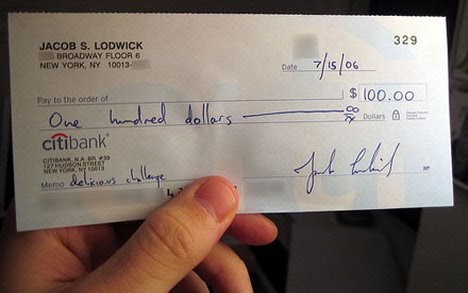 JACOB S. LODWICK
BROADWAY FLOOR 6
NEW YORK, NY 10013-
329
Date 7/15/06
Pay to the order of $ 100.00
One hundred dollars 00 Dollars
citibank
CITIBANK, N.A. BR. #39
127 HUDSON STREET
NEW YORK, NY 10013
Memo delicious challenge
MP